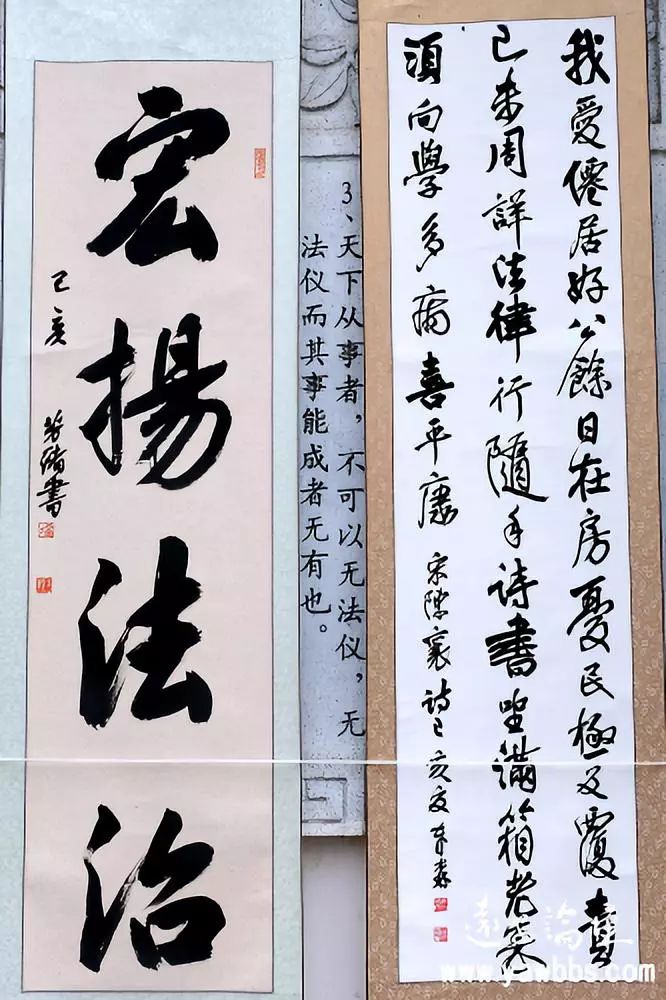 我愛僊居好公餘日在房憂民極反覆責
己未周詳法律行隨手詩書坐滿箱老來
須向學多病喜平康
宋陳襄詩己亥夏
3、天下从事者，不可以无法仪，无
法仪而其事能成者无有也。
宏揚法治
己亥
書
www.yawbbs.com